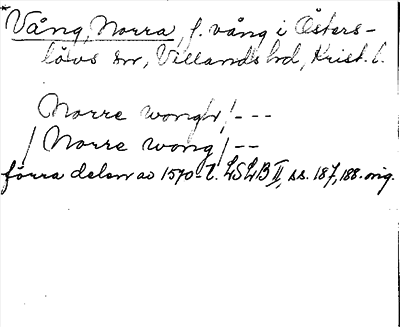 Vång, Norra, f. vång i Östers-
lövs sn, Villands hd, Krist. l.
Norre wongh, ---
/ Norre wong / --
förra delen av 1570-t. LSLB II, ss. 187, 188. orig.